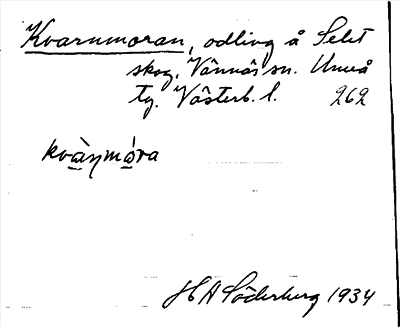 Kvarnmoran, odling å Selet
skog, Vännäs sn. Umeå
tg. Västerb. l. 262
kvàɳmóra
H A Söderberg 1934